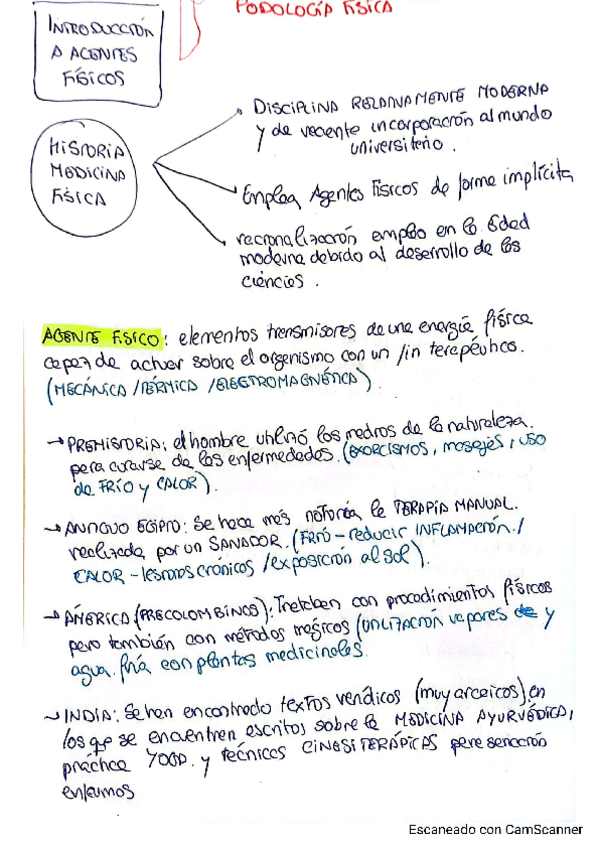 PODOLOGÍA FÍSICA
INTRODUCCIÓN
A AGENTES
FÍSICOS
HISTORIA
MEDICINA
FÍSICA
DISCIPLINA RELATIVAMENTE MODERNA
y de reciente incorporación al mundo
universitario.
Emplea Agentes Físicos de forma implícita
racionalización empleo en la Edad
moderna debido al desarrollo de las
ciencias.
AGENTE FÍSICO: elementos transmisores de una energía física
capaz de actuar sobre el organismo con un fin terapéutico.
(MECÁNICA / TÉRMICA / ELECTROMAGNÉTICA).
→ PREHISTORIA: el hombre utilizó los medios de la naturaleza
para curarse de las enfermedades. (EXORCISMOS, masajes, USO
de FRÍO y CALOR).
→ ANTIGUO EGIPTO: Se hace más notoria la TERAPIA MANUAL.
realizada por un SANADOR. (FRÍO - reducir INFLAMACIÓN /
CALOR - lesiones crónicas / exposición al sol).
→ AMÉRICA (PRECOLOMBINOS): Trataban con procedimientos físicos
pero también con métodos mágicos (UTILIZACIÓN vapores de y
agua fría con plantas medicinales.
→ INDIA: Se han encontrado textos verídicos (muy arcaicos) en
los que se encuentren escritos sobre la MEDICINA AYURVÉDICA,
práctica YOGA y TÉCNICAS CINESITERÁPICAS para sanación
enfermos
Escaneado con CamScanner